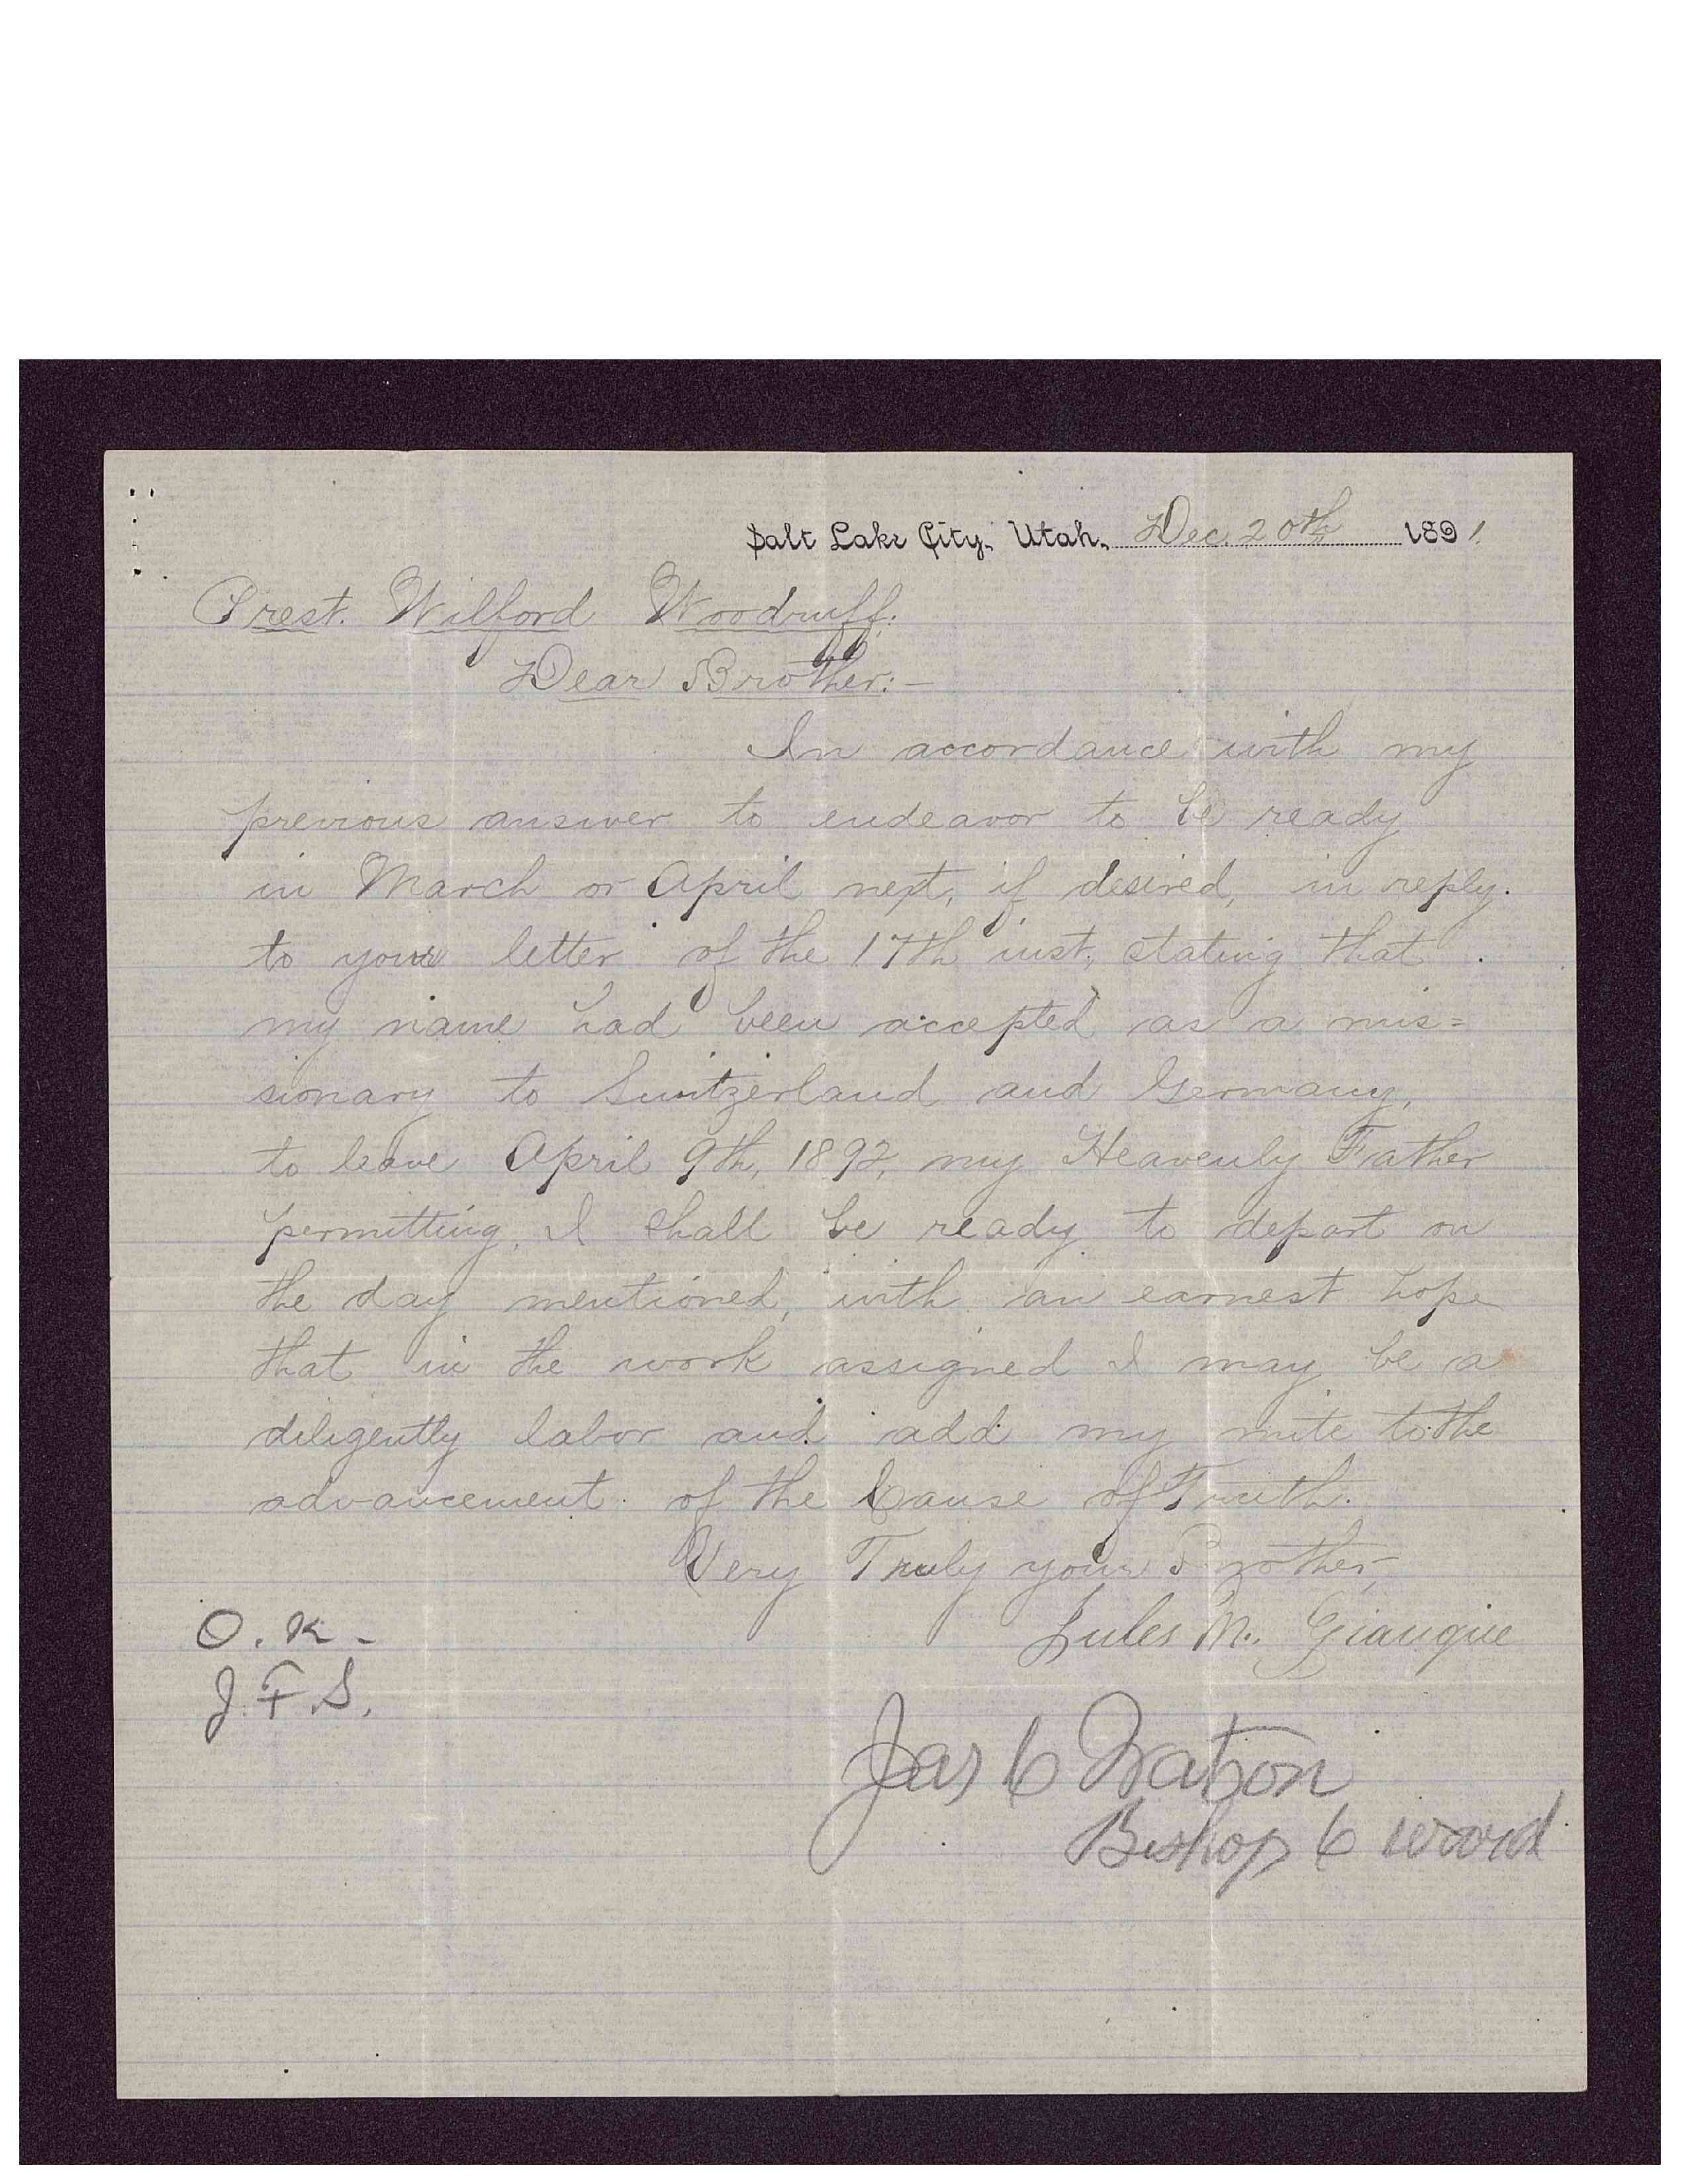 Salt Lake City, Utah, Dec. 20th 1891.
Prest. Wilford Woodruff.
Dear Brother:—
In accordance with my
previous answer to endeavor to be ready
in March or April next, if desired, in reply
to your letter of the 17th inst., stating that
my name had been accepted as a mis=
sionary to Switzerland and Germany,
to leave April 9th, 1892, my Heavenly Father
permitting, I shall be ready to depart on
the day mentioned, with an earnest hope
that in the work assigned I may be a
diligently labor and add my mite to the
advancement of the Cause of Truth.
Very Truly your Brother,
Jules M. Giauque
O. K. -
J. F. S.
Jas C Watson
Bishop 6 ward